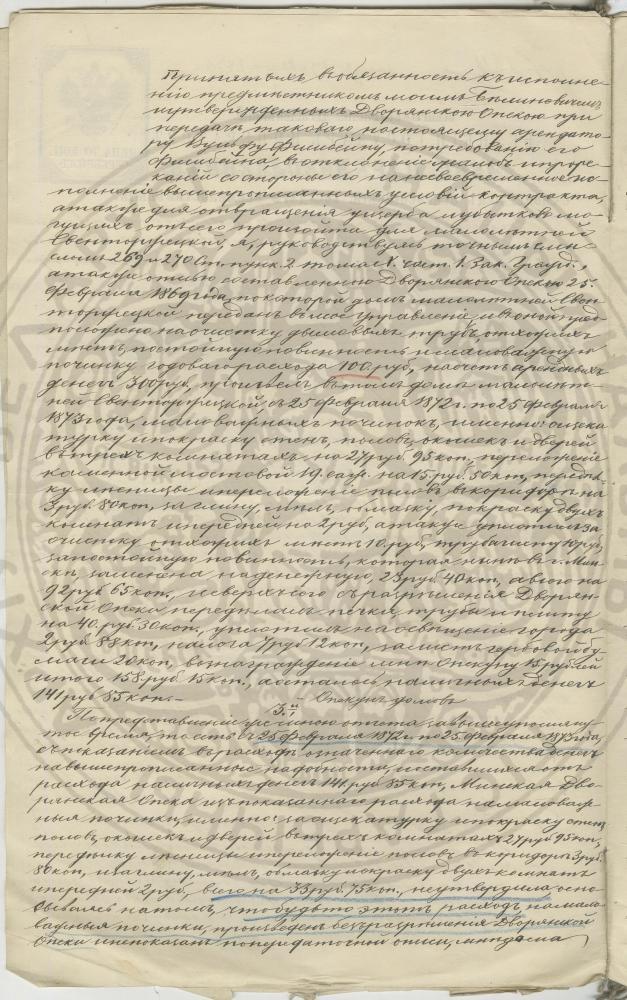 Принятыхъ въ обязанность къ исполне-
нію предмѣстникомъ моимъ
утвержденныхъ Дворянскою Опекою при
передачѣ таковаго настоящему арендато-
ру Вульфу Фишбейну, по требованію его
Фишбейна, въ отклоненіе жалобъ и проре-
каній со стороны его на несвоевременное ис-
полненіе вышепрописанныхъ условій контракта,
а также для отвращенія ущерба и убытковъ мо-
гущихъ отъ сего произойти для малолѣтней
Свенторжецкой, я, руководствуясь точнымъ смы-
сломъ 269 и 270 ст. пунк. 2 тома X. част. 1. Зак. Гражд.,
а также описью составленною Дворянскою Опекою 25
Февраля 1869 года, по которой домъ малолѣтней Свен-
торжецкой переданъ въ мое управленіе и въ оной
положено на очистку дымовыхъ трубъ, отхожихъ
мѣстъ, постойную повинность и маловажную
починку годоваго расхода 100 руб., на счетъ арендныхъ
денегъ 300 руб., произвелъ въ томъ домѣ малолѣт-
ней Свенторжецкой съ 25 Февраля 1872 г. по 25 Февраля
1873 года, маловажныхъ починокъ, именно: ощека
турку и покраску стенъ, половъ, окошекъ и дверей
въ трехъ комнатахъ на 27 руб. 95 коп., переложеніе
каменной мостовой 19 саж. на 15 руб. 50 коп., передѣл-
ку лѣстницы и переложеніе половъ въ коридорѣ на
3 руб. 80 коп., за глину, мѣлъ, обмазку, покраску двухъ
комнатъ и передней на 2 руб., а также уплатилъ за
очистку отхожихъ мѣстъ 10 руб., трубочисту 10 руб.,
за постойную повинность, которая нынѣ въ г. Мин-
скѣ замѣнена на денежную, 23 руб. 40 коп., а всего на
92 руб. 65 коп., и сверхъ сего съ разрѣшенія Дворян-
ской Опеки передѣлалъ печки, трубы и плиту
на 40 руб. 30 коп., уплатилъ на освѣщеніе города
2 руб. 88 коп., налога 7 руб. 12 коп., за листъ гербовой бу-
маги 20 коп., вознагражденіе мнѣ Опекуну 15 руб.
итого 158 руб. 15 коп., а осталось наличныхъ денегъ
141 руб. 85 коп. — Опекунъ домовъ
3.й
По представленіи уже мною отчета за вышеупомяну-
тое время, то есть съ 25 Февраля 1872 г. по 25 Февраля 1873 года,
съ показаніемъ въ расходъ означеннаго количества денегъ
на вышепрописанныя надобности, и оставшихся отъ
расхода наличныхъ денегъ 141 руб. 85 коп., Минская Дво-
рянская Опека изъ показаннаго расхода на маловаж-
ныя починки, именно: за ощекатурку и покраску стенъ
половъ, окошекъ и дверей въ трехъ комнатахъ 27 руб. 95 коп.,
передѣлку лѣстницы и переложеніе половъ въ коридорѣ 3 руб.
80 коп., и за глину, мѣлъ, обмазку и покраску двухъ комнатъ
и передней 2 руб., всего на 33 руб. 75 коп., не утвердила осно-
вываясь на томъ, что будто этотъ расходъ на мало-
важныя починки, произведенъ безъ разрѣшенія Дворянской
Опеки и не показанъ по передаточной описи, между тѣмъ